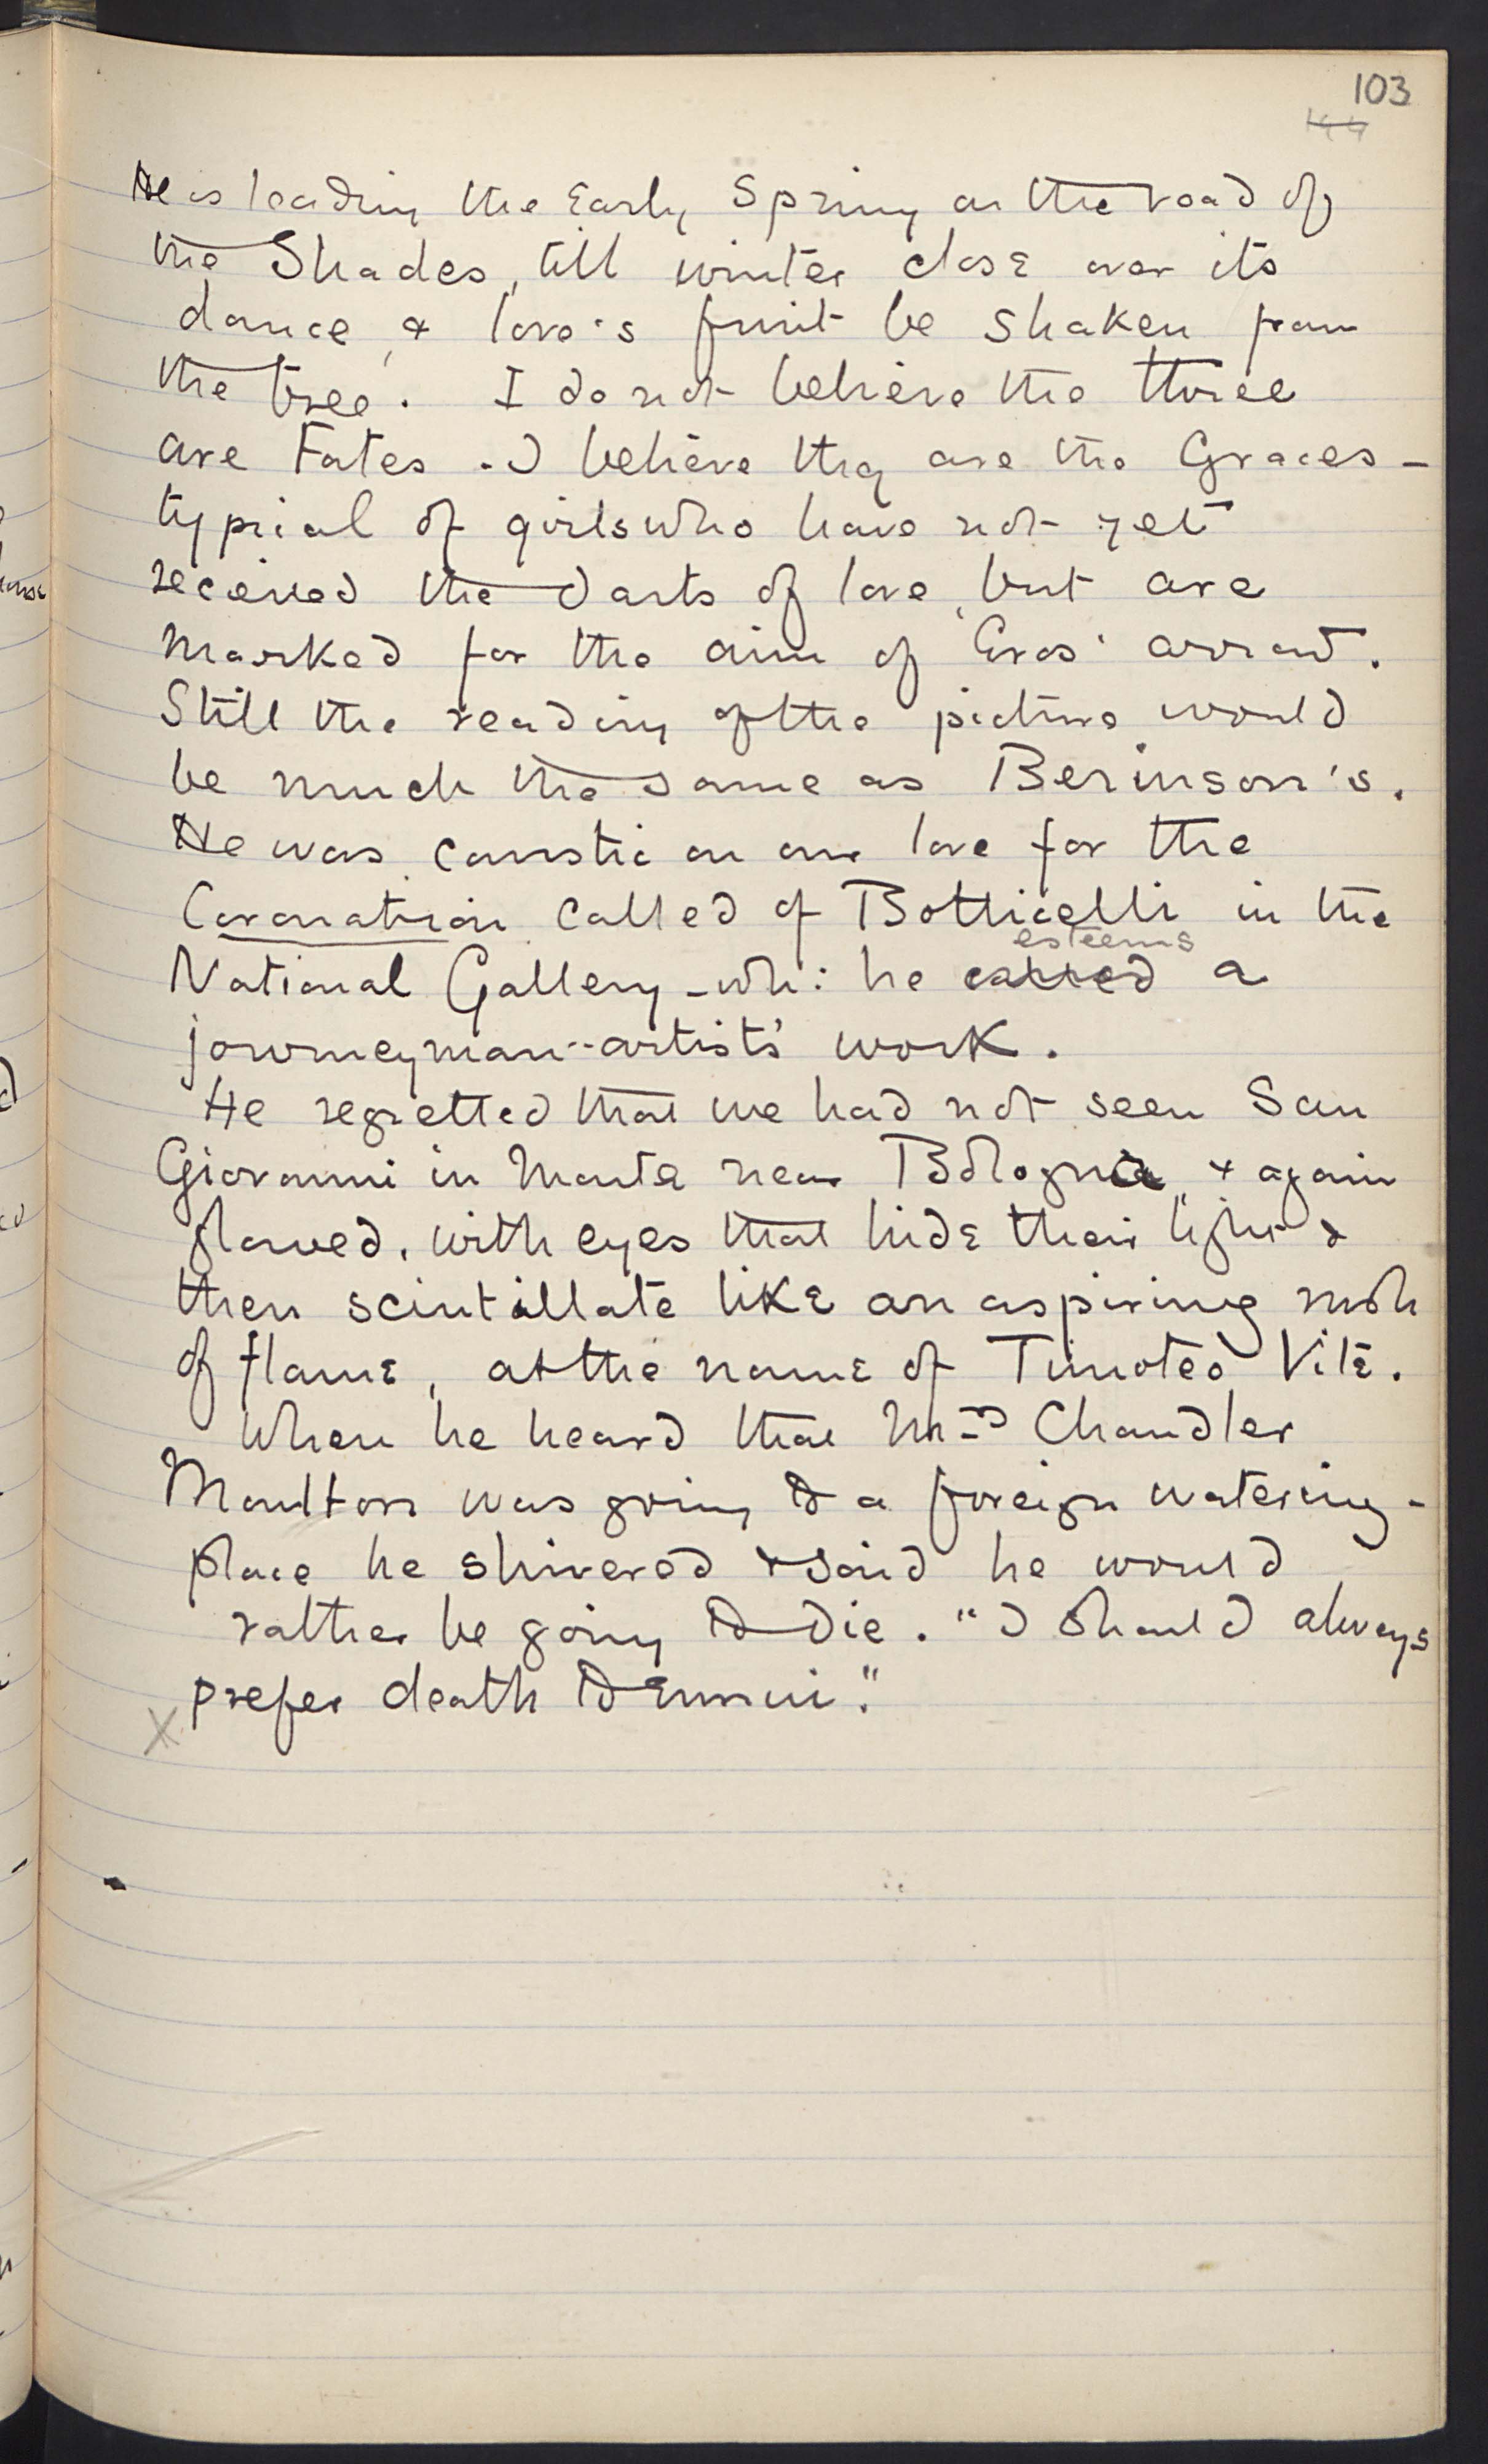 103
He is leading the Early Spring on the road of
the Shades, till winter close over its
dance, & love's fruit be shaken from
the tree. I do not believe the three
are Fates. I believe they are the Graces –
typical of girls who have not yet
received the darts of love, but are
marked for the aim of Eros' arrow.
Still the reading of the picture would
be much the same as Berinson's.
He was caustic on our love for the
Coronation called of Botticelli in the
esteems
National Gallery – wh: he called a
journeyman-artists' work.
He regretted that we had not seen San
Giovanni in Monte near Bologna, & again
glowed, with eyes that hide their light &
then scintillate like an aspiring rush
of flame, at the name of Timoteo Vite.
When he heard that Mrs Chandler
Moulton was going to a foreign watering-
place he shivered & said he would
rather be going to die. "I should always
prefer death to Ennui."
X